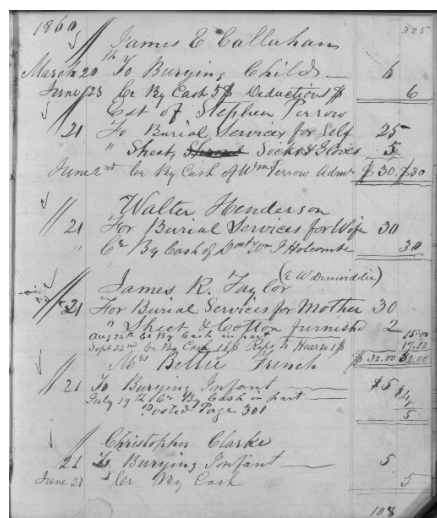 1860 325
James E Callaham
March 20th To Burying Child 6
June 23 Cr By Cash 5$ Deduction 1$ 6
Est of Stephen Perrow
21 To Burial Services for Self 25
" Sheet, Socks & Gloves 5
June 2nd Cr By Cash of Wm Perrow Admr $30. $30
Walter Henderson
21 For Burial Services for Wife 30
" Cr By Cash of Wm J Holcombe 30
James R. Taylor (E W Dinwiddie)
21 For Burial Services for Mother 30
" Sheet & Cotton furnished 2
Aug 24th Cr By Cash in part 15.00
Sept 22nd Cr By Cash to Hearse 1$ 17.00
$32.00 32.00
Mrs Bettie French
21 To Burying Infant $5
July 19th Cr By Cash in part
Posted Page 301 5
Christopher Clarke
21 To Burying Infant 5
June 21 Cr By Cash 5
108